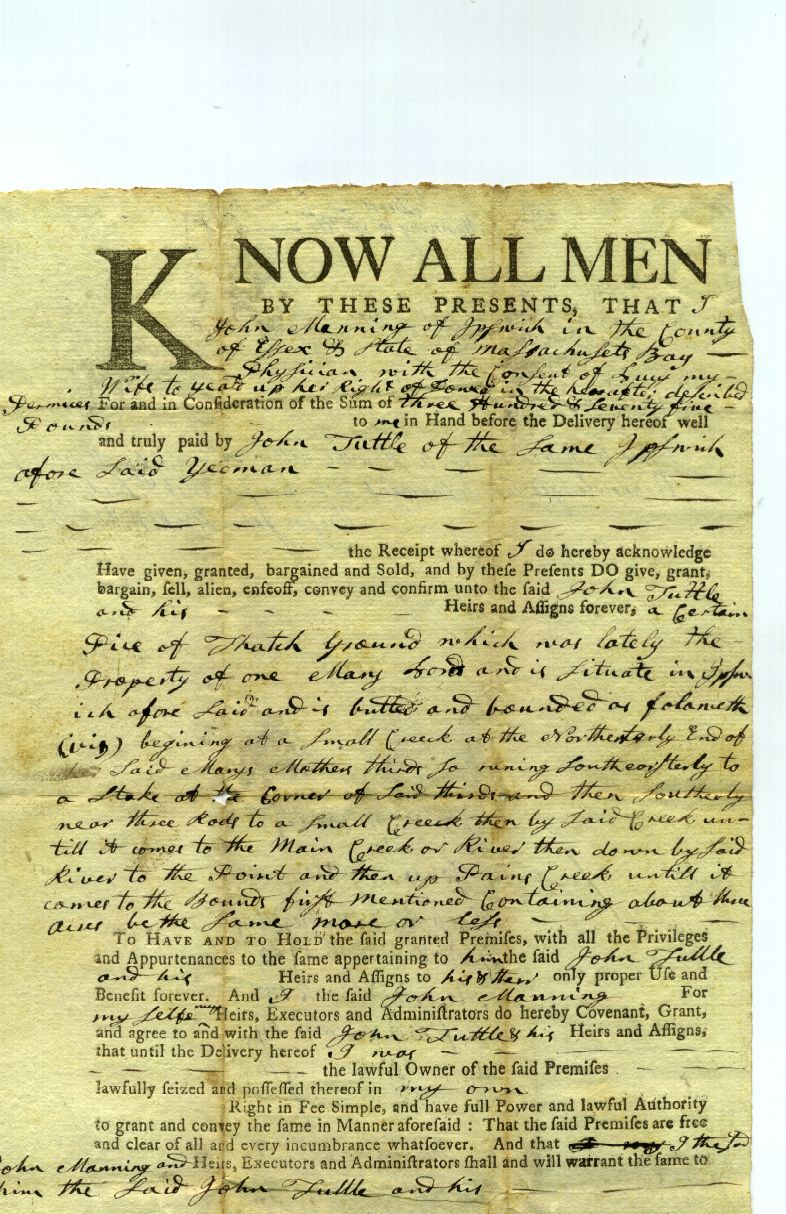 KNOW ALL MEN
BY THESE PRESENTS, THAT I
John Manning of Ipswich in the County
of Essex & State of Massachusets Bay —
Physician with the Consent of Lucy my —
Wife to yeald up her Right of Dower in the herafter described
Permices For and in Conſideration of the Sum of three Hundred & Seventy five —
Pounds to me in Hand before the Delivery hereof well
and truly paid by John Tuttle of the Same Ipswich
afore Said Yeoman
the Receipt whereof I do hereby acknowledge
Have given, granted, bargained and Sold, and by theſe Preſents DO give, grant,
bargain, ſell, alien, enfeoff, convey and confirm unto the ſaid John Tuttle
and his - - - - Heirs and Aſſigns forever, a Certain
Pice of Thatch Ground which was lately the
Property of one Mary and is Situate in Ipsw
ich afore Said and is butted and bounded as foloweth
(viz) begining at a Small Creek at the Northeasterly End of
Said Marys Mothers thirds So runing Southeasterly to
a Stake at the Corner of Said thirds and then Southerly
near three Rods to a Small Creeck then by Said Creek un-
till it comes to the Main Creek or River then down by Said
River to the Point and then up Pains Creek untill it
comes to the Bounds first Mentioned Containing about three
acres be the Same more or less
TO HAVE AND TO HOLD the ſaid granted Premiſes, with all the Privileges
and Appurtenances to the ſame appertaining to him the ſaid John Tuttle
and his Heirs and Aſſigns to his & their only proper Uſe and
Benefit forever. And I the ſaid John Manning For
my Selfe my Heirs, Executors and Adminiſtrators do hereby Covenant, Grant,
and agree to and with the ſaid John Tuttle & his Heirs and Aſſigns,
that until the Delivery hereof I was
the lawful Owner of the ſaid Premiſes
lawfully ſeized and poſſeſſed thereof in my own
Right in Fee Simple, and have full Power and lawful Authority
to grant and convey the ſame in Manner aforeſaid : That the ſaid Premiſes are free
and clear of all and every incumbrance whatſoever. And that I the Sd
John Manning and Heirs, Executors and Adminiſtrators ſhall and will warrant the ſame to
him the Said John Tuttle and his